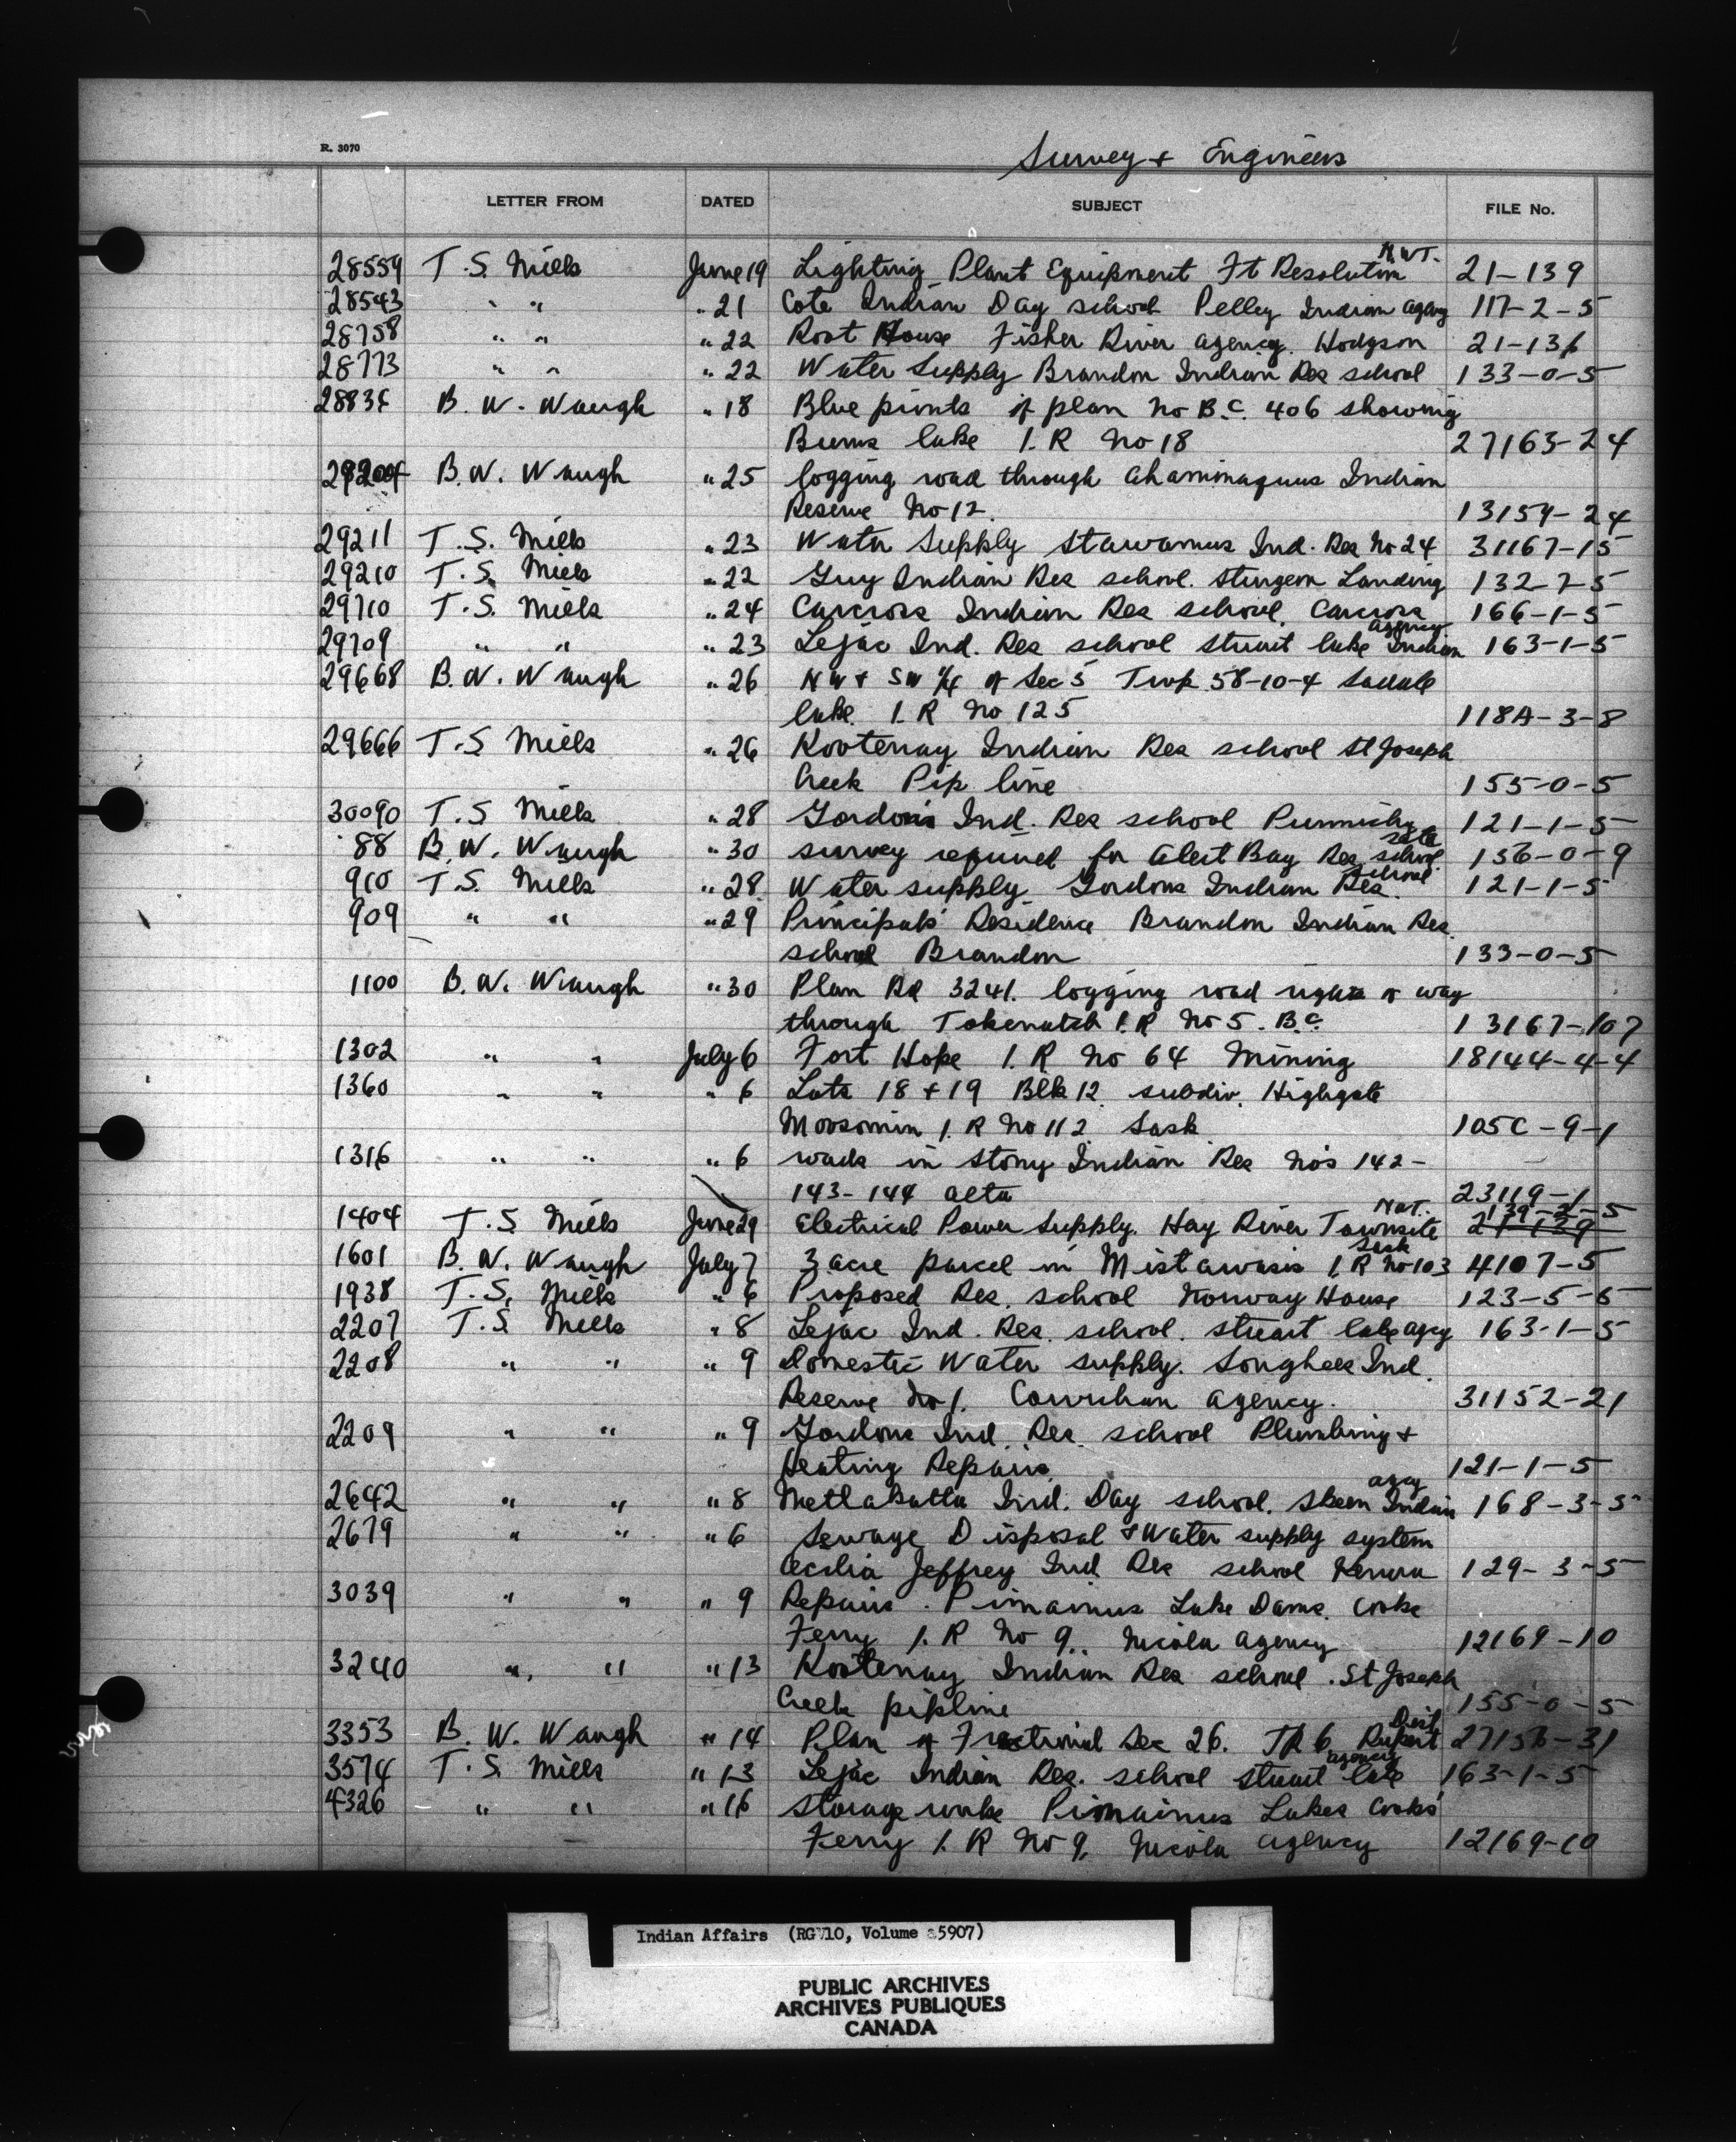 R. 3070
Survey + Engineers
LETTER FROM DATED SUBJECT FILE No.
N.W.T.
28559 T. S. Mills June 19 Lighting Plant Equipment Ft Resolution 21-139
28543 " " " 21 Cote Indian Day school Pelley Indian agency 117-2-5
28758 " " " 22 Root House Fisher River agency. Hodgson 21-136
28773 " " " 22 Water Supply Brandon Indian Res school 133-0-5
28836 B. W. Waugh " 18 Blue prints of plan No B.C. 406 showing
Burns lake I. R No 18 27163-24
B. W. Waugh " 25 logging road through Ahaminaquus Indian
Reserve No 12. 13159-24
29211 T. S. Mills " 23 Water Supply Stawamus Ind. Res No 24 31167-15
29210 T. S. Mills " 22 Guy Indian Res school. Sturgeon Landing 132-7-5
29710 T. S. Mills " 24 Carcross Indian Res school, Carcross 166-1-5
agency
29709 " " " 23 Lejac Ind. Res school Stuart lake Indian 163-1-5
29668 B. W. Waugh " 26 NW + SW 1/4 of Sec 5 Twp 58-10-4 Saddle
lake I. R No 125 118A-3-8
29666 T. S Mills " 26 Kootenay Indian Res school St Joseph
Creek Pip line 155-0-5
30090 T. S Mills " 28 Gordon's Ind. Res school Punnichy 121-1-5
site
88 B. W. Waugh " 30 survey required for Alert Bay Res school 156-0-9
school
910 T. S. Mills " 28 Water supply Gordons Indian Res. 121-1-5
909 " " " 29 Principals Residence Brandon Indian Res.
school Brandon 133-0-5
1100 B. W. Waugh " 30 Plan Rd 3241. logging road right of way
through I. R No 5. B.C. 13167-107
1302 " " July 6 Fort Hope I. R No 64 Mining 18144-4-4
1360 " " " 6 Lots 18 + 19 Blk 12. subdiv. Highgate
Moosomin I. R No 112 Sask 105C-9-1
1316 " " " 6 roads in Stony Indian Res No's 142-
143-144 alta 23119-1
N.W.T. 139-2-5
1404 T. S Mills June 29 Electrical Power Supply. Hay River Townsite 21-139
Sask
1601 B. W. Waugh July 7 3 acre parcel in Mistawasis I. R No 103 4107-5
1938 T. S. Mills " 6 Proposed Res. school Norway House 123-5-5
2207 T. S. Mills " 8 Lejac Ind. Res. school. Stuart lake agcy 163-1-5
2208 " " " 9 Domestic Water supply. Songhees Ind.
Reserve No 1. Cowichan agency. 31152-21
2209 " " " 9 Gordons Ind. Res. school Plumbing +
Heating Repairs 121-1-5
agcy
2642 " " " 8 Metlakatla Ind. Day school. Skeen Indian 168-3-5
2679 " " " 6 Sewage Disposal & Water supply system
Cecilia Jeffrey Ind Res school Kenora 129-3-5
3039 " " " 9 Repairs. Pimainus Lake Dams. Cooks
Ferry I. R No 9.. Nicola agency 12169-10
3240 " " " 13 Kootenay Indian Res school. St Joseph
Creek pipline 155-0-5
Dist
3353 B. W. Waugh " 14 Plan of Fractional Sec 26. TR 6 Rupert 27156-31
agency
3574 T. S. Mills " 13 Lejac Indian Res. school Stuart lake 163-1-5
4326 " " " 16 Storage works Pimainus Lakes Cooks
Ferry I. R No 9, Nicola agency 12169-10
Indian Affairs (RG 10, Volume 5907)
PUBLIC ARCHIVES
ARCHIVES PUBLIQUES
CANADA